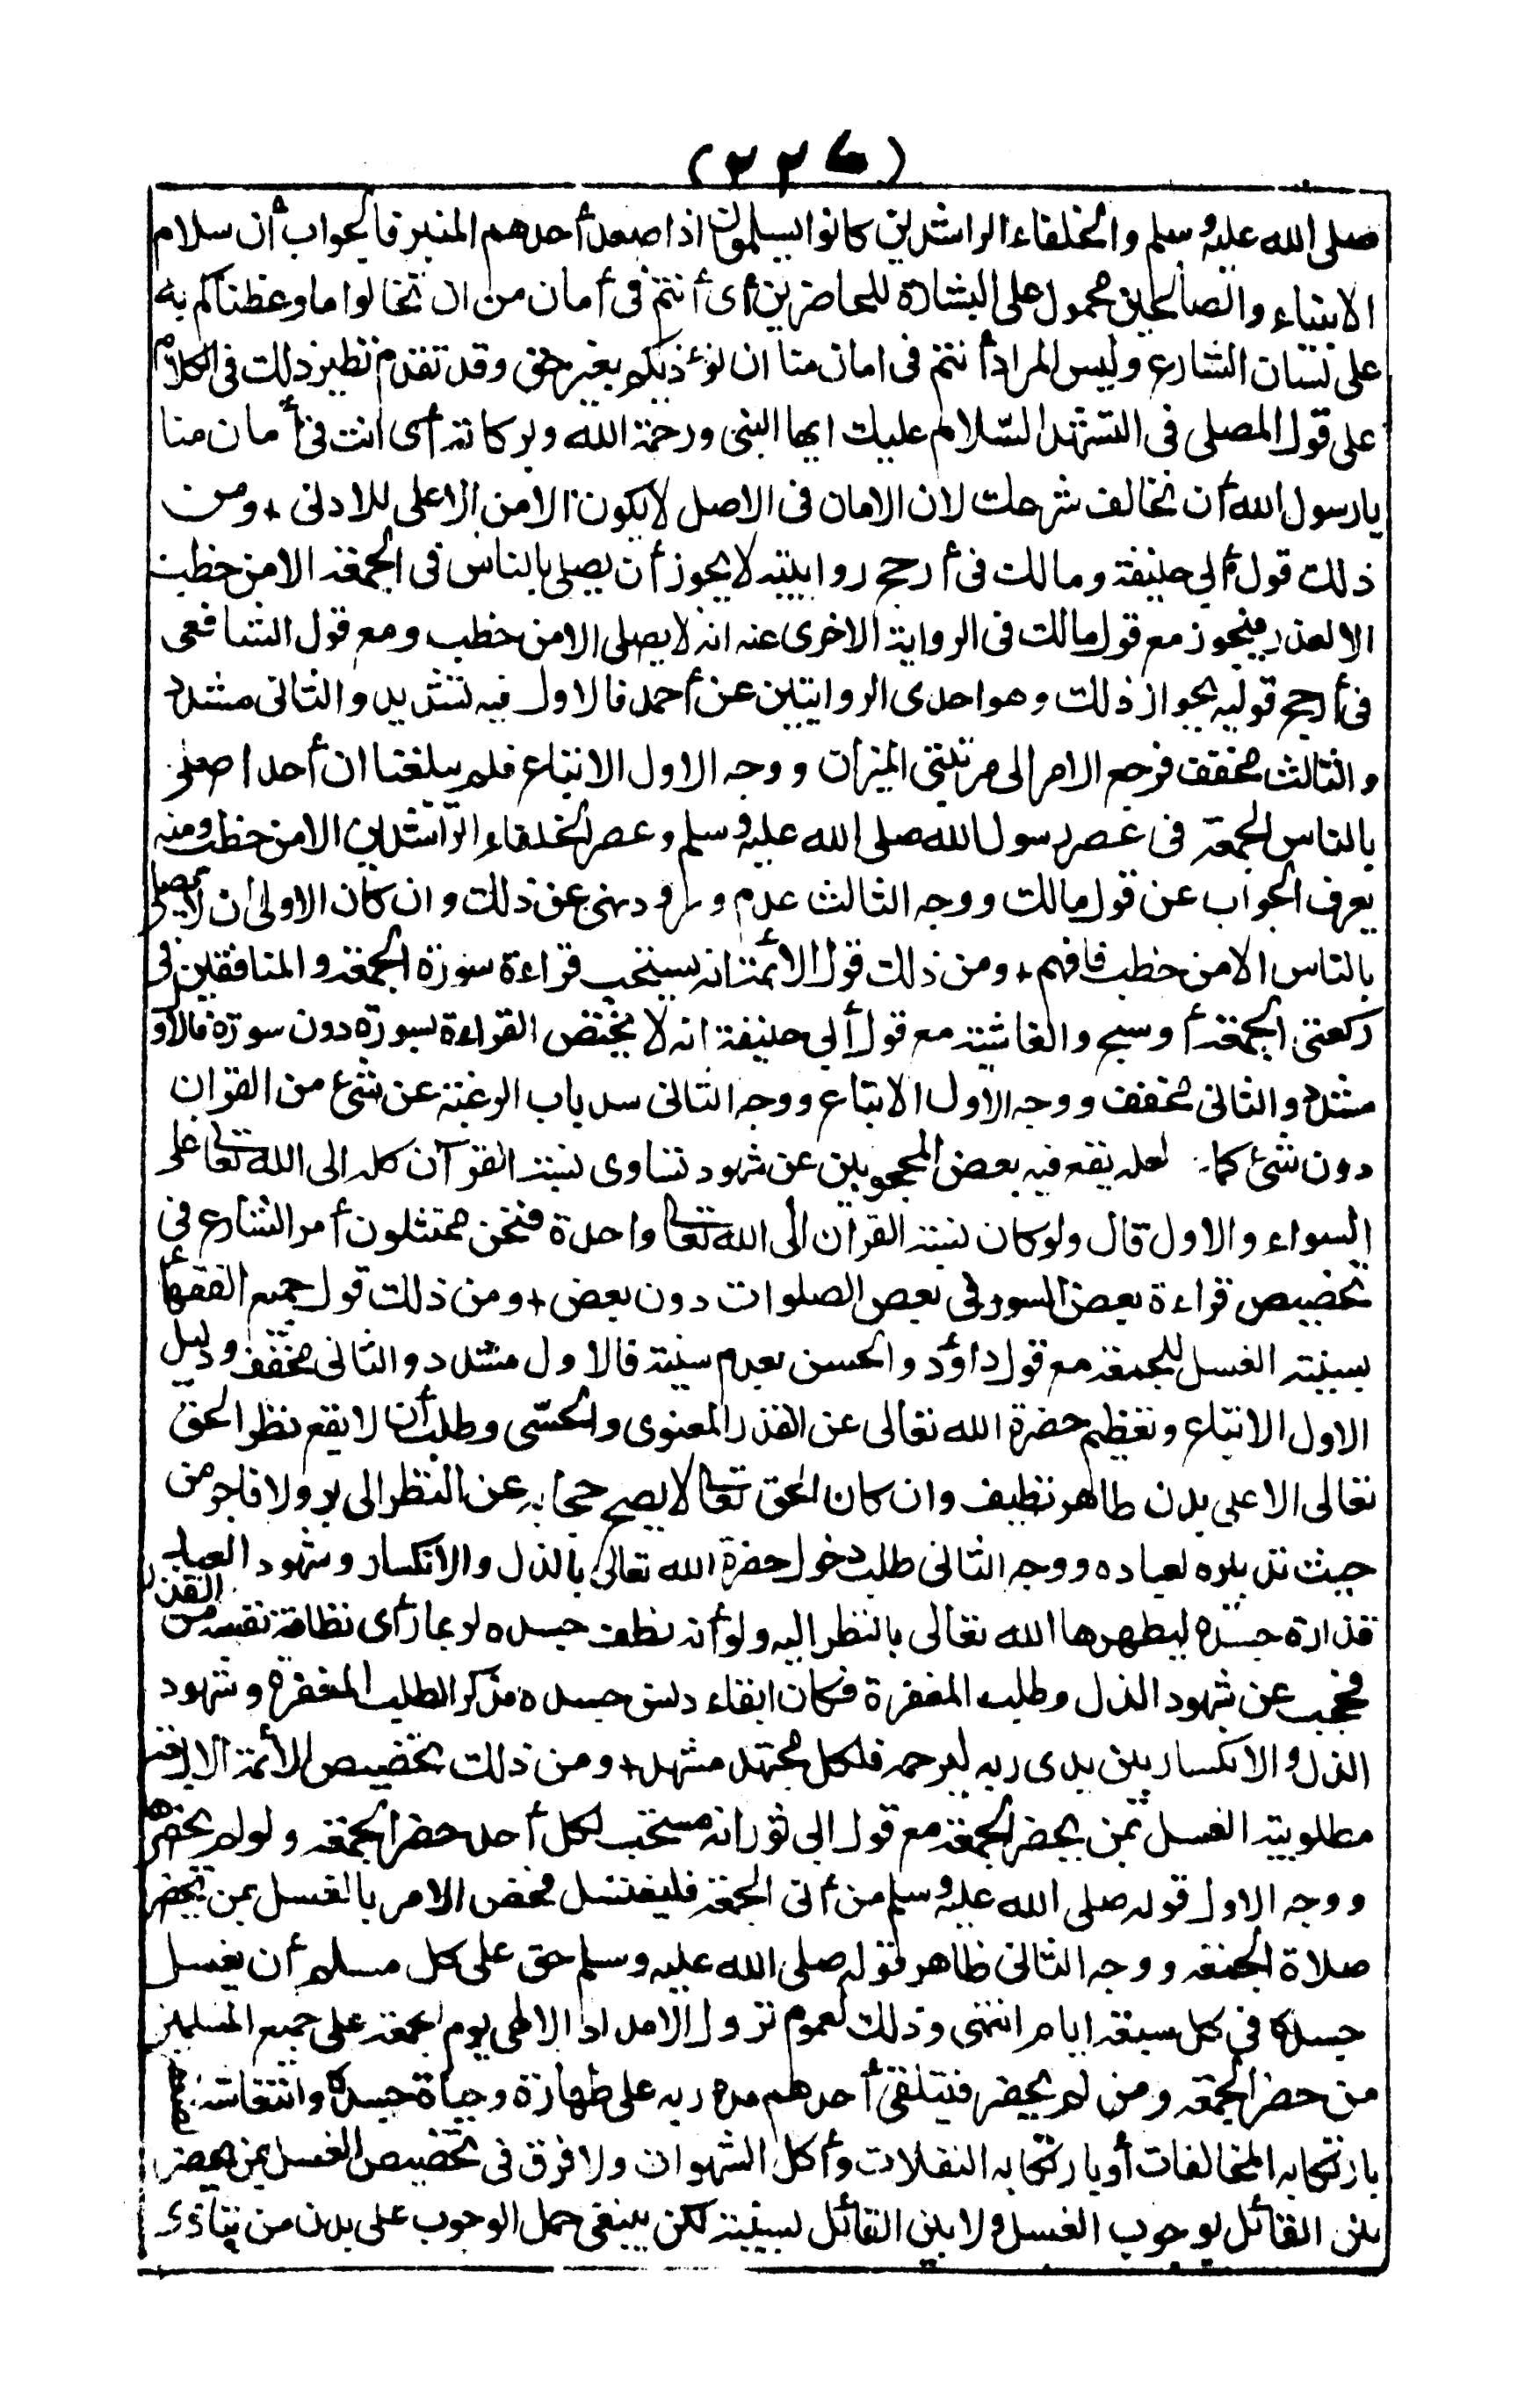 (٢٢٦)
صلى الله عليه وسلم والخلفاء الراشدين كانوا يسلمون اذا صعد أحدهم المنبر فالجواب أن سلام
الانبياء والصالحين محمول على البشارة للحاضرين أى أنتم فى أمان من ان تخالوا ما وعظناكم به
على لسان الشارع وليس المراد أنتم فى امان منا ان نؤذيكم بغير حق وقد تقدم نظير ذلك فى الكلام
على قول المصلى فى التشهد السّلام عليك ايها النبى ورحمة الله وبركاته أى انت فى أمان منا
يا رسول الله أن نخالف شرعك لان الامان فى الاصل لا يكون الا من الاعلى للادنى + ومن
ذلك قول أبي حنيفة ومالك فى أرجح روايتيه لا يجوز أن يصلى بالناس فى الجمعة الا من خطب
الا لعذر فيجوز مع قول مالك فى الرواية الاخرى عنه انه لا يصلى الا من خطب ومع قول الشافعى
فى أرجح قوليه بجواز ذلك وهو احدى الروايتين عن أحمد فالاول فيه تشديد والثانى مشدد
والثالث مخفف فرجع الامر الى مرتبتى الميزان ووجه الاول الاتباع فلم يبلغنا ان أحدا صلى
بالناس الجمعة فى عصر رسول الله صلى الله عليه وسلم وعصر الخلفاء الراشدين الا من خطب ومنه
يعرف الجواب عن قول مالك ووجه الثالث عدم ورود نهى عن ذلك وان كان الاولى أن لا يصلى
بالناس الا من خطب فافهم + ومن ذلك قول الأئمة انه يستحب قراءة سورة الجمعة والمنافقين فى
ركعتى الجمعة أو سبح والغاشية مع قول أبي حنيفة انه لا يختص القراءة بسورة دون سورة فالاو
مشدد والثانى مخفف ووجه الاول الاتباع ووجه الثانى سد باب الرغبة عن شئ من القران
دون شئ كما لعله يقع فيه بعض المحجوبين عن شهود تساوى نسبة القرآن كله الى الله تعالى على
السواء والاول قال ولو كان نسبة القرآن الى الله تعالى واحدة فنحن ممتثلون أمر الشارع فى
تخصيص قراءة بعض السور فى بعض الصلوات دون بعض + ومن ذلك قول جميع الفقهاء
بسنية الغسل للجمعة مع قول داؤد والحسن بعدم سنية فالاول مشدد والثانى مخفف ودليل
الاول الاتباع وتعظيم حضرة الله تعالى عن القذر المعنوى والحسّى وطلب أن لا يقع نظر الحق
تعالى الا على بدن طاهر نظيف وان كان الحق تعالى لا يصح حجابه عن النظر الى بر ولا فاجر من
حيث تدبيره لعباده ووجه الثانى طلب دخول حضرة الله تعالى بالذل والانكسار وشهود العبد
قذارة جسده ليطهرها الله تعالى بالنظر اليه ولو أنه نظف جسده لربما رأى نظافة نفسه من القذر
فحجب عن شهود الذل وطلب المغفرة فكان ابقاء دنس جسده مذكرا لطلب المغفرة وشهود
الذل والانكسار بين يدى ربه ليرحمه فلكل مجتهد مشهد + ومن ذلك تخصيص الأئمة الاربعة
مطلوبية الغسل بمن يحضر الجمعة مع قول ابى ثور انه مستحب لكل أحد حضر الجمعة ولو لم يحضرها
ووجه الاول قوله صلى الله عليه وسلم من أتى الجمعة فليغتسل فخص الامر بالغسل بمن يحضر
صلاة الجمعة ووجه الثانى ظاهر قوله صلى الله عليه وسلم حق على كل مسلم أن يغسل
جسده فى كل سبعة ايام انتهى وذلك لعموم نزول الامداد الالهى يوم الجمعة على جميع المسلمين
من حضر الجمعة ومن لم يحضر فيتلقى أحدهم مدد ربه على طهارة وحياة جسده وانتعاشه
بارتكابه المخالفات أو بارتكابه الغفلات وأكل الشهوات ولا فرق فى تخصيص الغسل بمن يحضر
بين القائل بوجوب الغسل ولا بين القائل بسنية لكن ينبغى حمل الوجوب على بدن من يتأذى